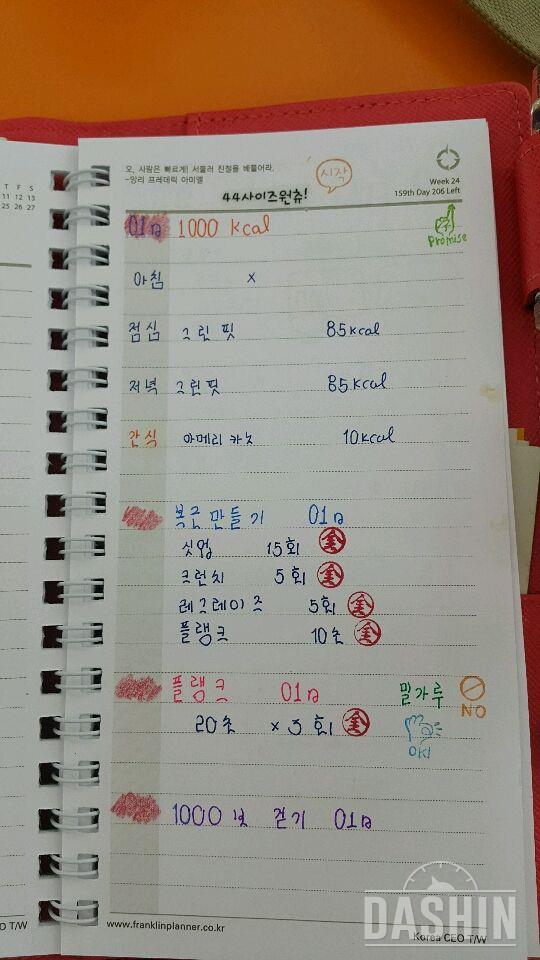 T F S
11 12 13
25 26 27
오, 사람은 빠르게! 서둘러 친절을 베풀어라.
-앙리 프레데릭 아미엘
시작
Week 24
159th Day 206 Left
44사이즈원츄!
01일 1000 kcal
promise
아침 x
점심 그린핏 85kcal
저녁 그린핏 85kcal
간식 아메리카노 10kcal
복근만들기 01일
싯업 15회 金
크런치 5회 金
레그레이즈 5회 金
플랭크 10초 金
플랭크 01일 밀가루
NO
20초 x 3회 金
OK!
1000보 걷기 01일
DASHIN
www.franklinplanner.co.kr
Korea CEO T/W
O T/W